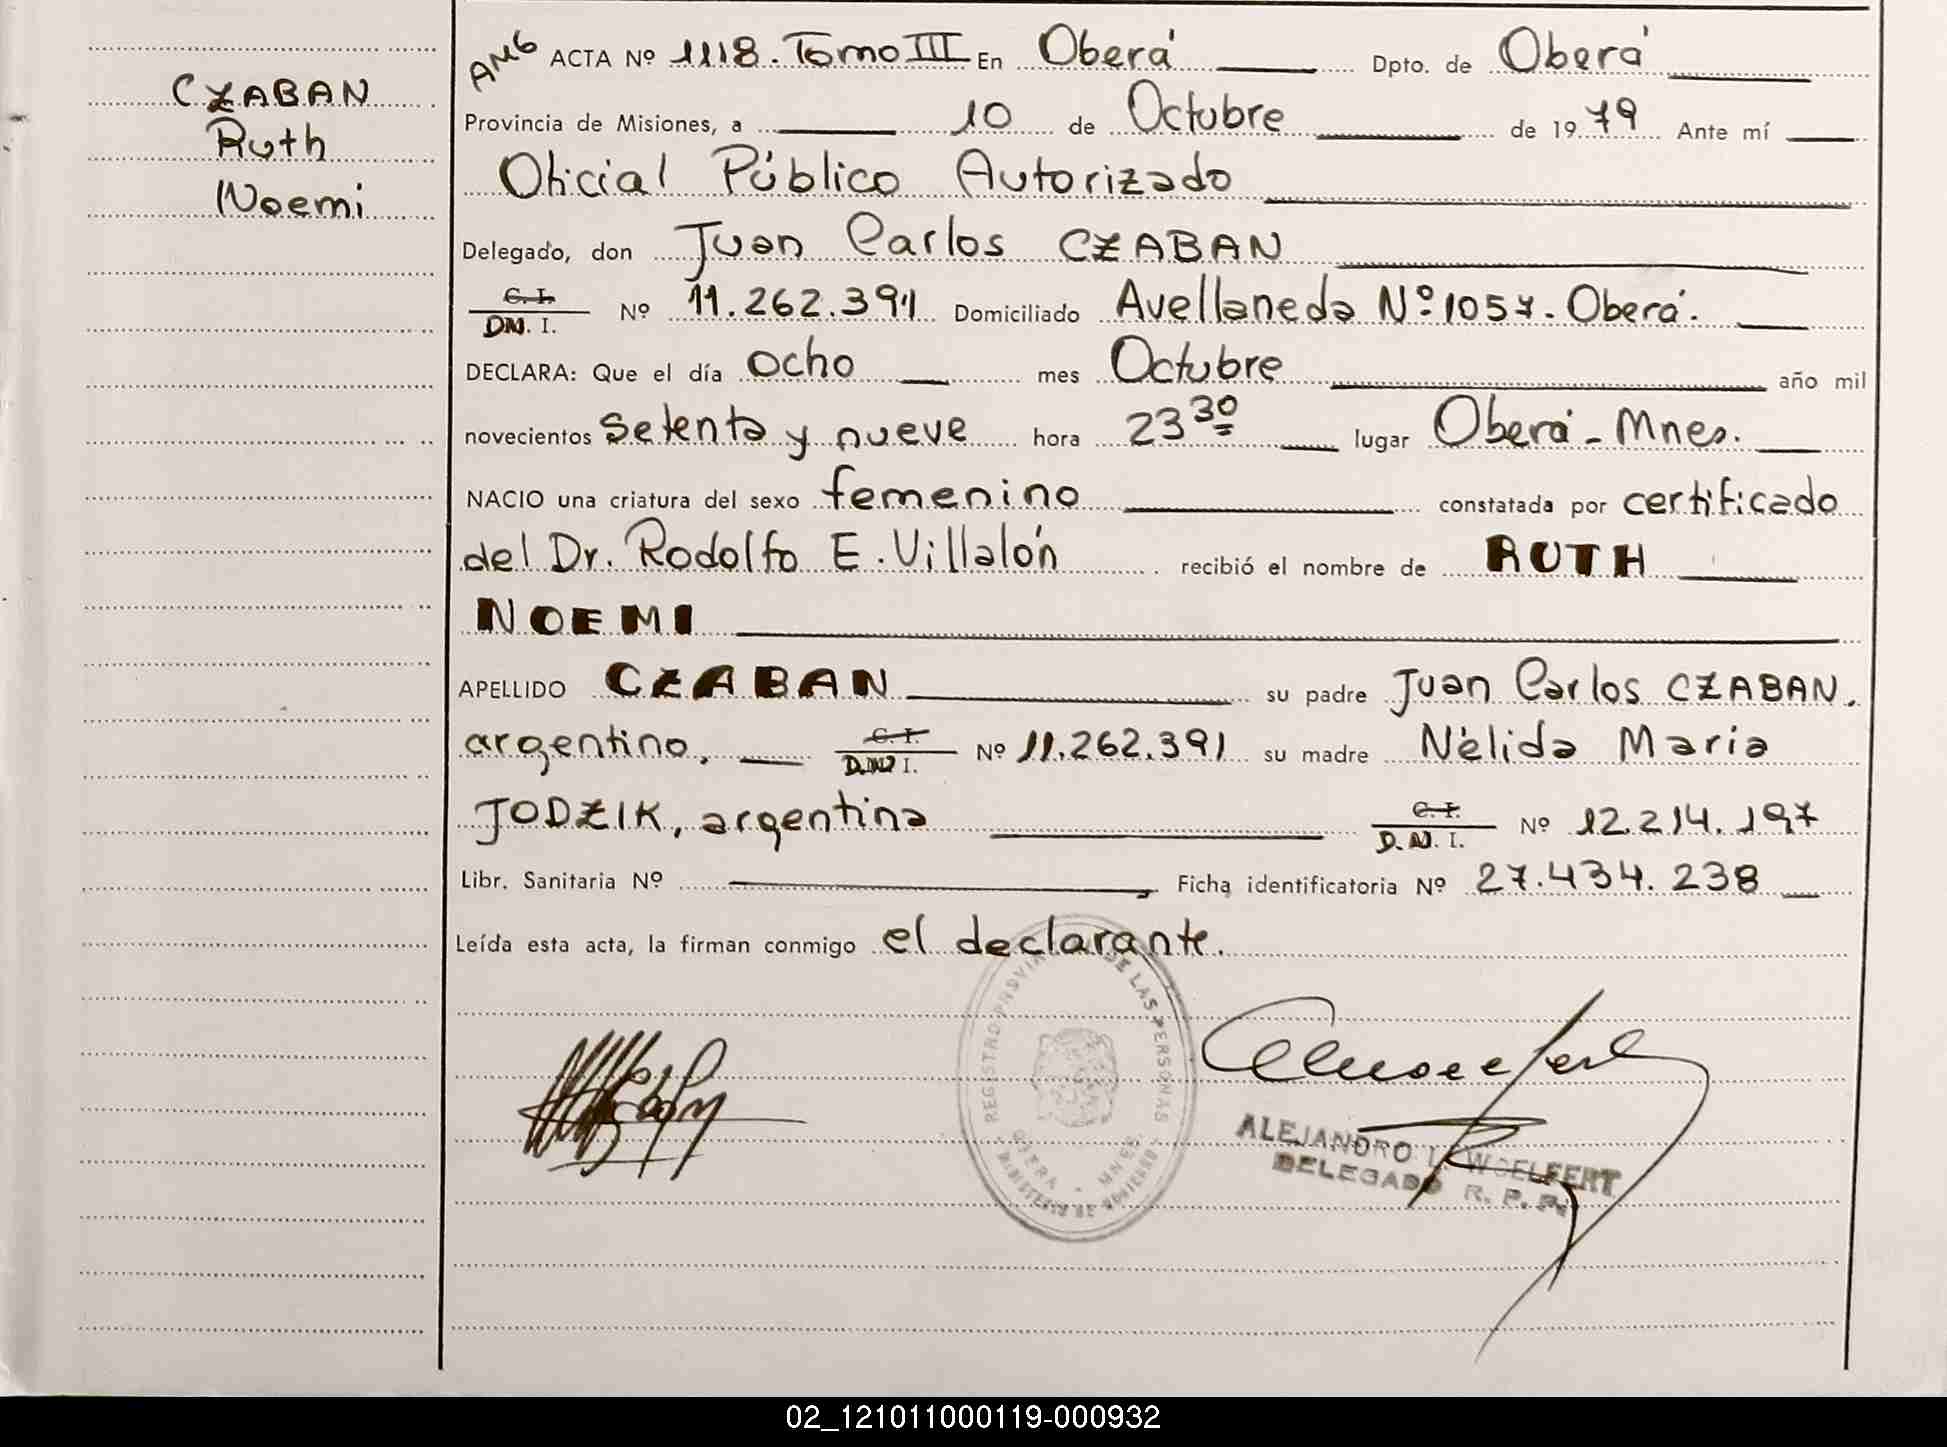 CZABAN
Ruth
Noemi
ACTA Nº 1118. Tomo III En Oberá Dpto. de Oberá
Provincia de Misiones, a 10 de Octubre de 1979 Ante mí
Oficial Público Autorizado
Delegado, don Juan Carlos CZABAN
C. I.
D.N. I. Nº 11.262.391 Domiciliado Avellaneda Nº 1057. Oberá.
DECLARA: Que el día ocho mes Octubre año mil
novecientos setenta y nueve hora 23 30 lugar Oberá - Mnes.
NACIO una criatura del sexo femenino constatada por certificado
del Dr. Rodolfo E. Villalón recibió el nombre de RUTH
NOEMI
APELLIDO CZABAN su padre Juan Carlos CZABAN.
argentino, C. I. D.N. I. Nº 11.262.391 su madre Nélida Maria
JODZIK, argentina C. I. D. N. I. Nº 12.214.197
Libr. Sanitaria Nº Ficha identificatoria Nº 27.434.238
Leída esta acta, la firman conmigo el declarante.
REGISTRO PROVINCIAL DE LAS PERSONAS
OBERA - MNES
MINISTERIO DE GOBIERNO
ALEJANDRO WOELFERT
DELEGADO R. P. P.
02_121011000119-000932